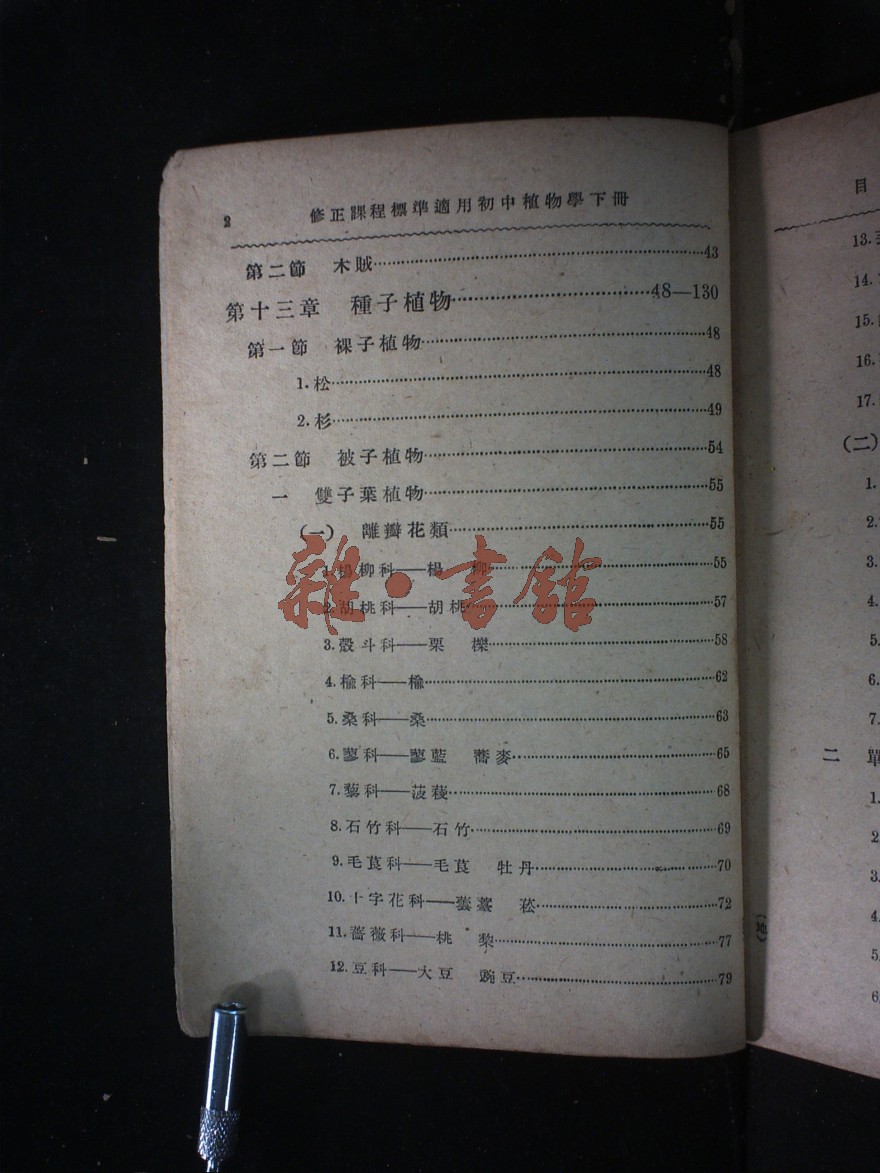 2 修正課程標準適用初中植物學下冊
第二節 木賊……43
第十三章 種子植物……48—130
第一節 裸子植物……48
1.松……48
2.杉……49
第二節 被子植物……54
一 雙子葉植物……55
(一) 離瓣花類……55
1.楊柳科——楊 柳……55
2.胡桃科——胡桃……57
3.殼斗科——栗 櫟……58
4.榆科——榆……62
5.桑科——桑……63
6.蓼科——蓼藍 蕎麥……65
7.藜科——菠薐……68
8.石竹科——石竹……69
9.毛茛科——毛茛 牡丹……70
10.十字花科——蕓薹 菘……72
11.薔薇科——桃 梨……77
12.豆科——大豆 豌豆……79
雜·書館
目
13.
14.
15.
16.
17.
(二)
1.
2.
3.
4.
5.
6.
7.
二 單
1.
2
3.
4.
5.
6.